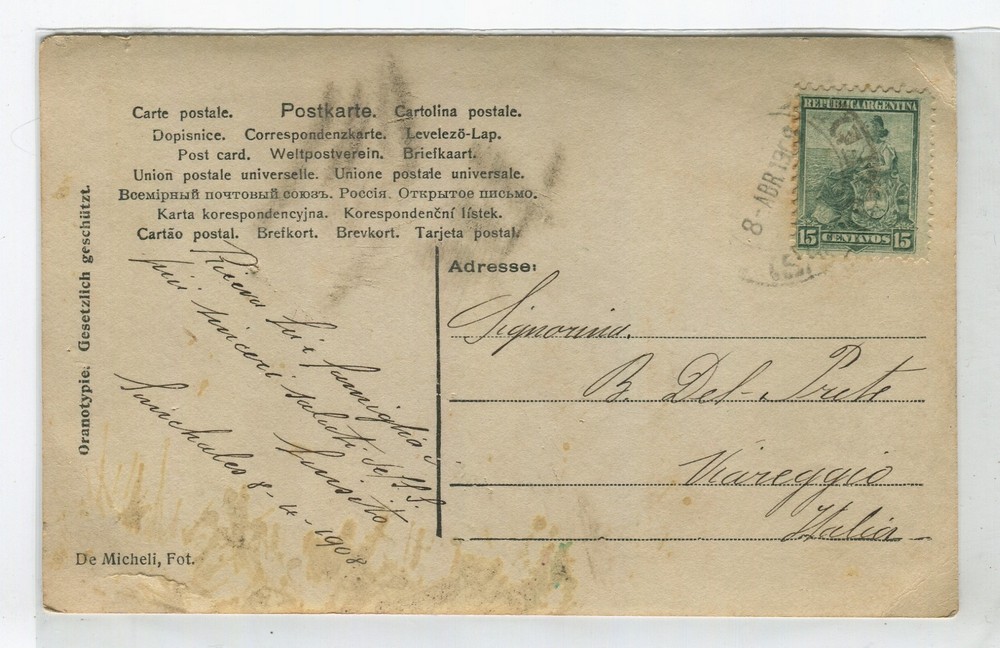 Carte postale. Postkarte. Cartolina postale.
Dopisnice. Correspondenzkarte. Levelező-Lap.
Post card. Weltpostverein. Briefkaart.
Union postale universelle. Unione postale universale.
Всемірный почтовый союзъ. Россія. Открытое письмо.
Karta korespondencyjna. Korespondenční lístek.
Cartão postal. Brefkort. Brevkort. Tarjeta postal.
Oranotypie. Gesetzlich geschützt.
REPUBLICA ARGENTINA
15 CENTAVOS 15
8-ABR 1908
Adresse:
Signorina.
B. Del-Prete
Viareggio
Italia
famiglia i
più sinceri saluti del S.S.
Luisito
Sunchales 8-4-1908
De Micheli, Fot.